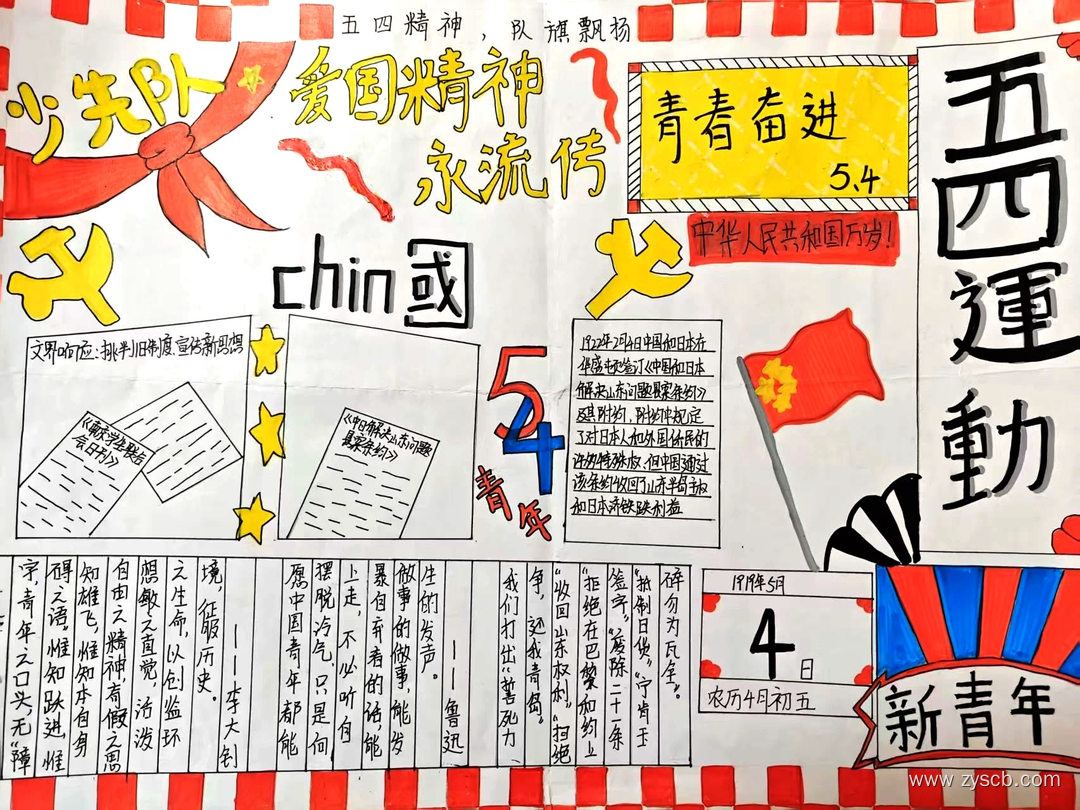 五四精神，队旗飘扬
少先队
爱国精神
永流传
青春奋进
5.4
中华人民共和国万岁！
五四運動
chin國
文界响应：挑战旧制度、宣传新思想
《南京学生联合
会日刊》
《中日解决山东问题
悬案条约》
54
青年
1922年2月4日中国和日本在
华盛顿签订《中国和日本
解决山东问题悬案条约》
及其附约，附约中规定
了对日本人和外国侨民的
许多特殊权，但中国通过
该条约收回了山东半岛主权
和日本济铁路利益
我们打出“誓死力
争，还我青岛。
“收回山东权利”“拒绝
“拒绝在巴黎和约上
签字”“废除二十一条
“抵制日货”“宁肯玉
碎勿为瓦全”。
愿中国青年都能
摆脱冷气，只是向
上走，不必听自
暴自弃者的话，能
做事的做事，能发
生的发声。
——鲁迅
字，青年之口头，无“障
碍之语，惟知跃进，惟
知雄飞，惟知本自身
自由之精神，奇僻之思
想，敏之直觉，活泼
之生命，以创监环
境，征服历史。
——李大钊
1919年5月
4日
农历4月初五
新青年
www.zyscb.com